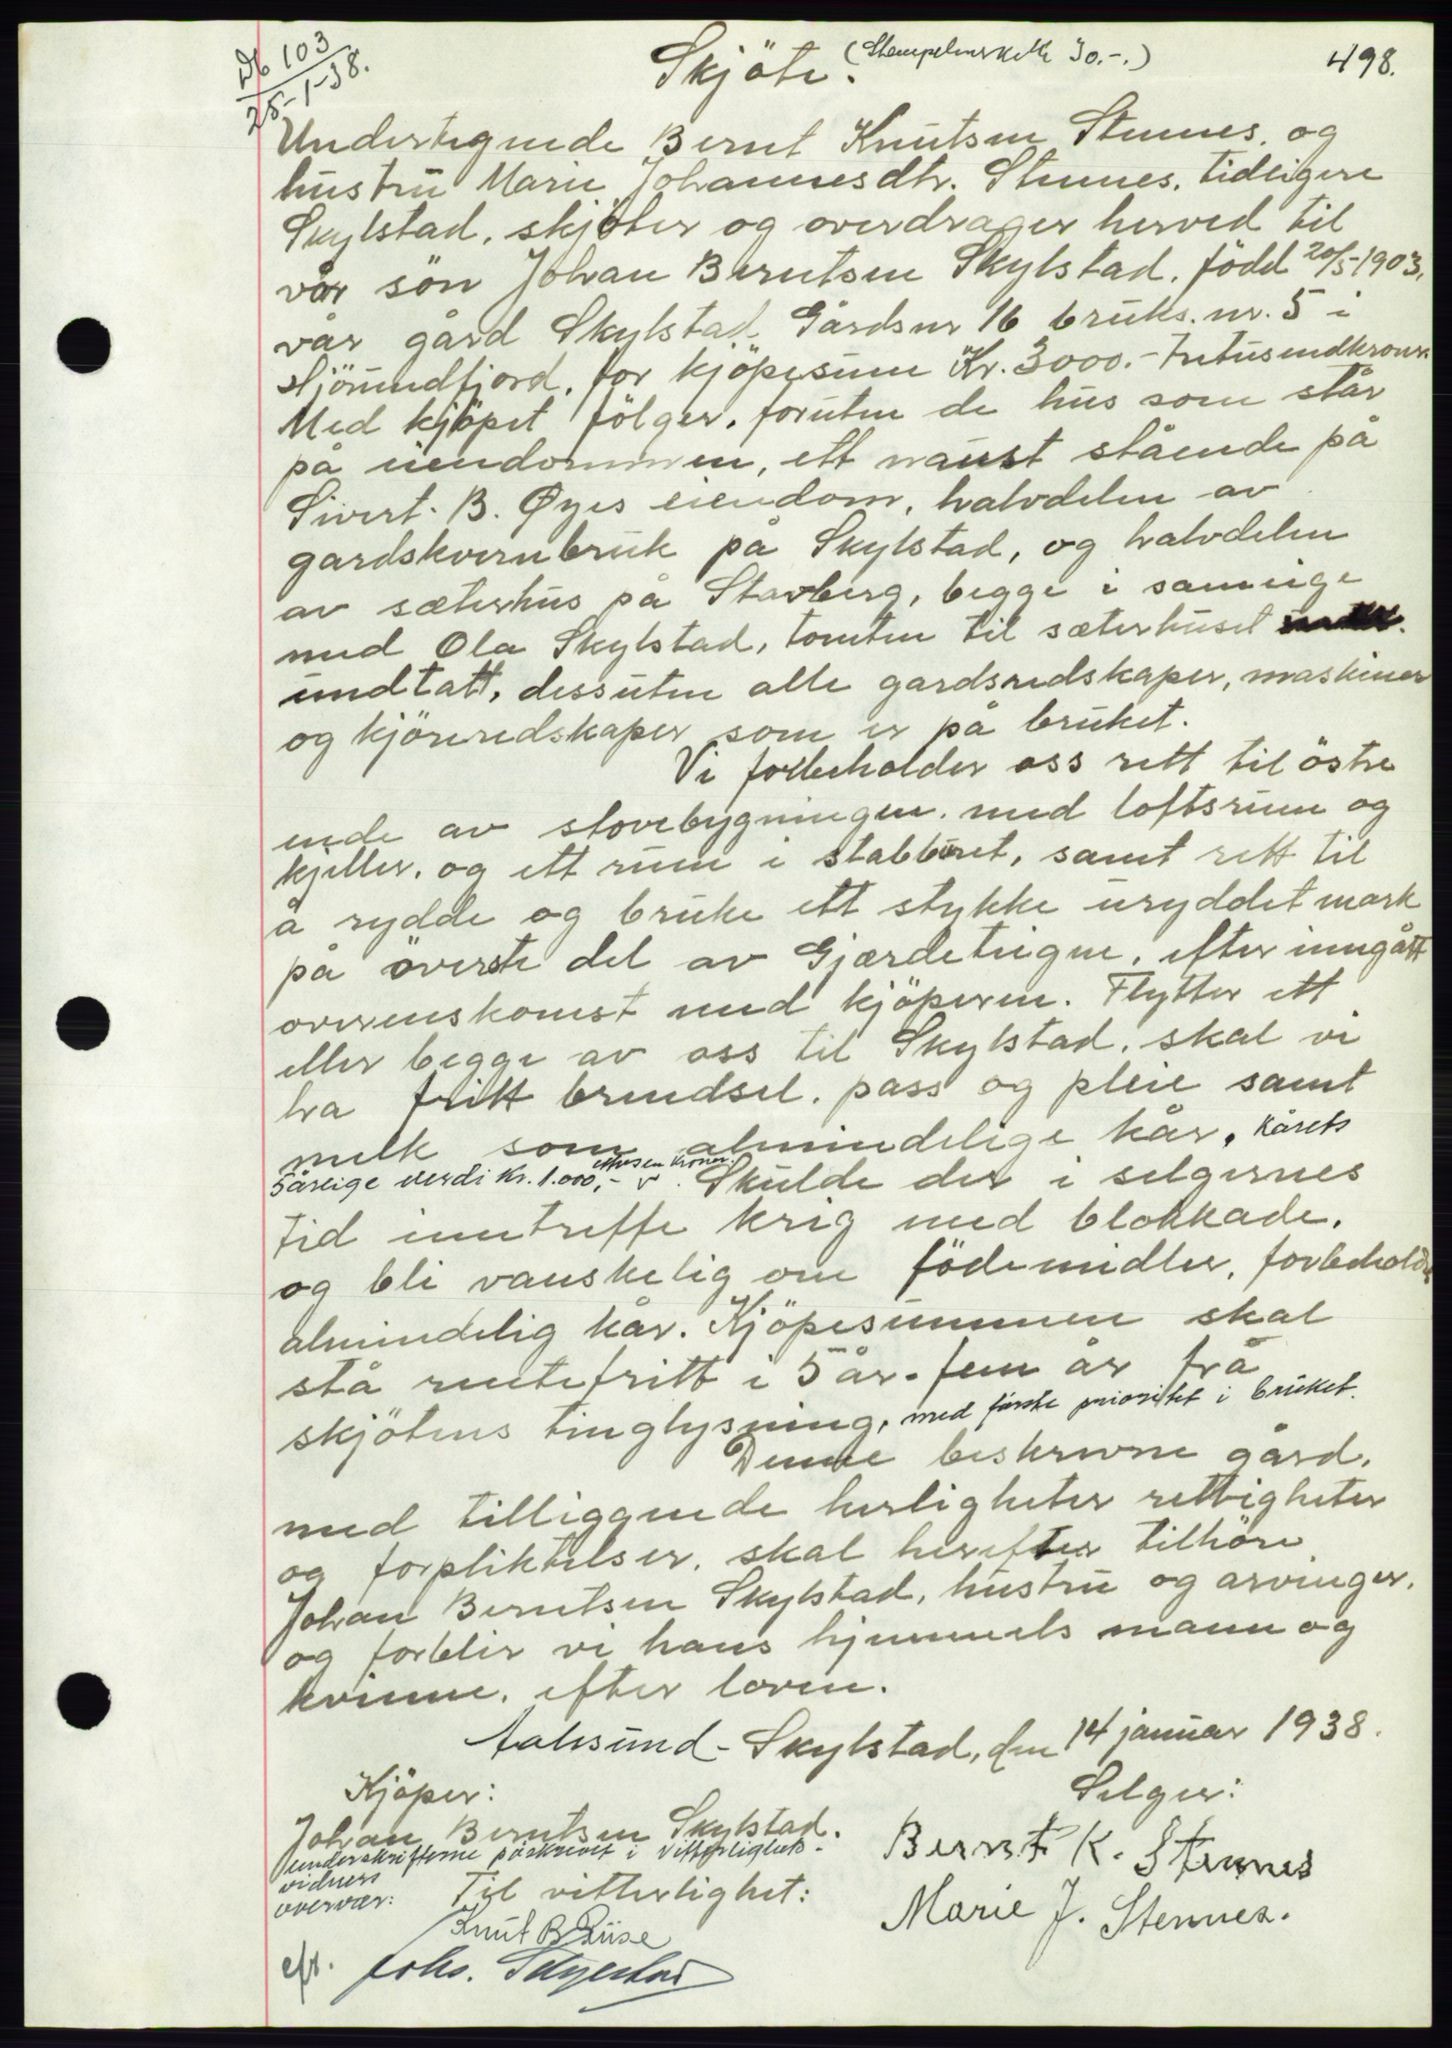 Db 103
25-1-38.
Skjöte. (Stempelmerket 30.-.)
498.
Undertegnede Bernt Knutsen Stennes. og
hustru Marie Johannesdtr. Stennes. tidligere
Skylstad. skjøter og overdrager herved til
vår sön Johan Berntsen Skylstad. född 20/5-1903.
vår gård Skylstad Gårdsnr 16 bruks.nr. 5 i
Hjörundfjord. for kjöpesum Kr. 3000.- tretusendkroner.
Med kjöpet fölger. foruten de hus som står
på eiendommen, ett naust stående på
Sivert. B. Øyes eiendom, halvdelen av
gardskvernbruk på Skylstad, og halvdelen
av sæterhus på Stavberg, begge i sameige
med Ola Skylstad, tomten til sæterhuset
undtatt, dessuten alle gardsredskaper, maskiner
og kjöreredskaper som er på bruket.
Vi forbeholder oss rett til östre
ende av stovebygningen. med loftsrum og
kjeller. og ett rum i stabburet, samt rett til
å rydde og bruke ett stykke uryddet mark
på överste del av Gjærdeteigne, efter inngått
overenskomst med kjöperen. Flytter ett
eller begge av oss til Skylstad. skal vi
ha fritt brendsel. pass og pleie samt
melk som almindelige kår. Kårets
5årlige verdi kr. 1.000,- ettusen kroner. Skulde der i selgernes
tid inntreffe krig med blokkade.
og bli vanskelig om födemidler, forbeholdes
almindelig kår. Kjöpesummen skal
stå rentefritt i 5 år. fem år frå
skjötens tinglysning, med förste prioritet i bruket.
Denne beskrevne gård.
med tilliggende herligheter rettigheter
og forpliktelser. skal herefter tilhöre
Johan Berntsen Skylstad, hustru og arvinger.
og forblir vi hans hjemmels mann og
kvinne. efter loven.
Aalesund - Skylstad, den 14 januar 1938.
Kjöper:
Selger:
Johan Berntsen Skylstad.
Bernt K. Stennes
underskrifterne påskrevet i vitterlighets-
vidners
overvær:
Til vitterlighet:
Marie J. Stennes.
Knut B Riise
efs.
Johs. Skylstad